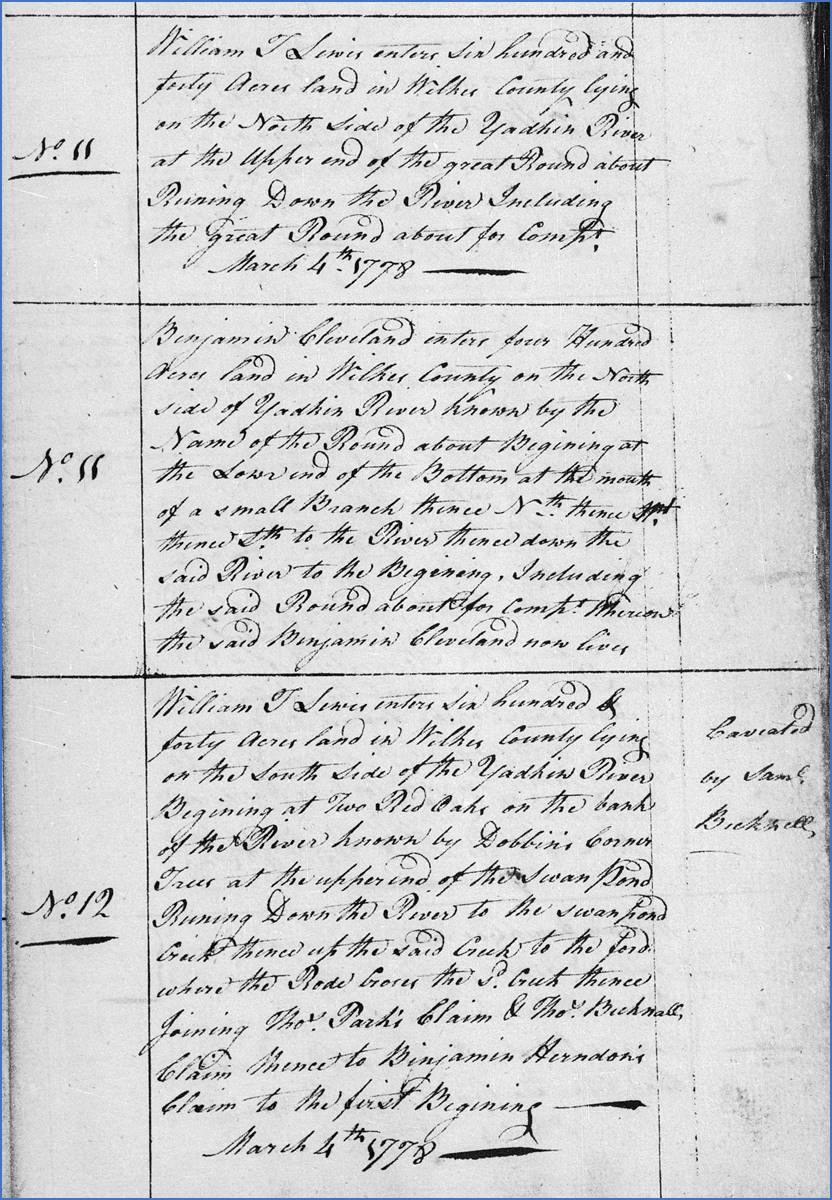 No. 11
William T Lewis enters six hundred and
forty Acres land in Wilkes County lying
on the North side of the Yadkin River
at the Upper end of the great Round about
Runing Down the River Including
the great Round about for Compt.
March 4th. 1778
No. 11
Benjamin Cleveland enters four Hundred
Acres land in Wilkes County on the North
side of Yadkin River known by the
Name of the Round about Begining at
the Lowr end of the Bottom at the mouth
of a small Branch thence Nth thence Wt
thence Sth to the River thence down the
said River to the Begining, Including
the said Round about for Compt. Whereon
the said Benjamin Cleveland now lives
No. 12
William T Lewis enters six hundred &
forty Acres land in Wilkes County lying
on the South side of the Yadkin River
Begining at Two Red Oaks on the bank
of the River known by Dobbins Corner
Trees at the upper end of the Swan Pond
Runing Down the River to the swan pond
Creek thence up the said Creek to the ford
where the Rode Croses the Sd. Creek thence
Joining Thos. Park's Claim & Thos. Bicknall
Claim thence to Binjamin Herndon's
Claim to the first Begining
March 4th 1778
Caveated
by Saml.
Bicknell